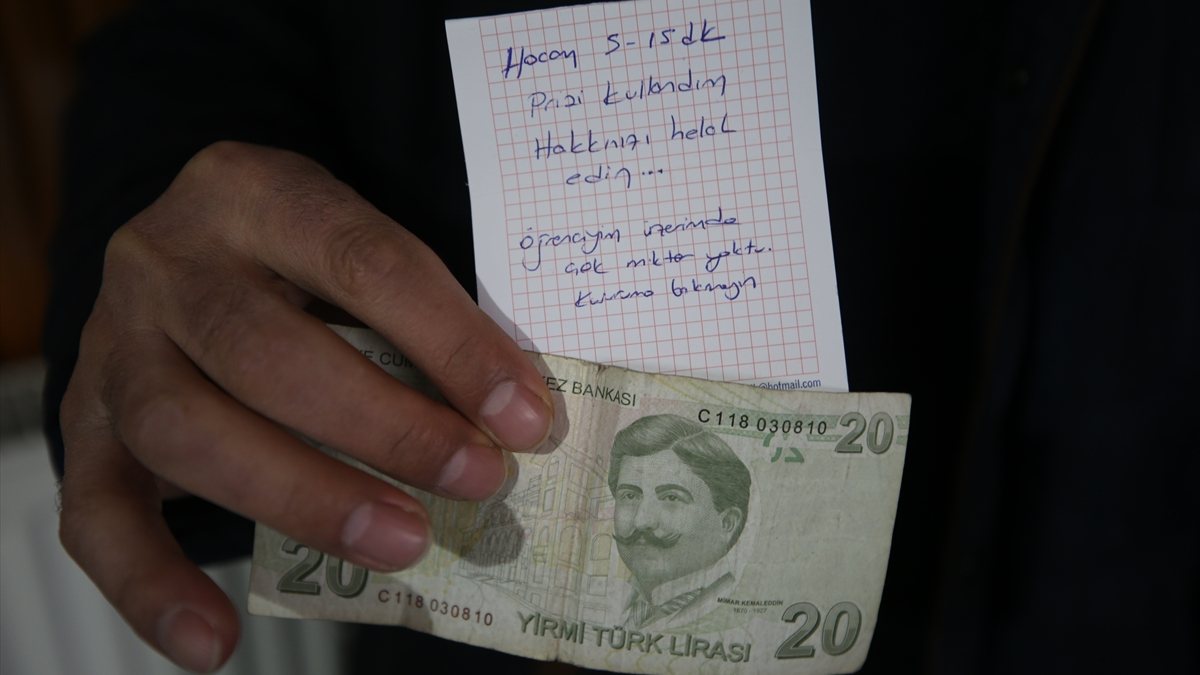 Hocam 5-15 dk
Prizi kullandım
Hakkınızı helal
edin...
Öğrenciyim üzerimde
çok miktar yoktu.
kusura bakmayın
@hotmail.com
EZ BANKASI
C118 030810
20
MİMAR KEMALEDDİN
1870 - 1927
20
C118 030810
YİRMİ TÜRK LİRASI
20